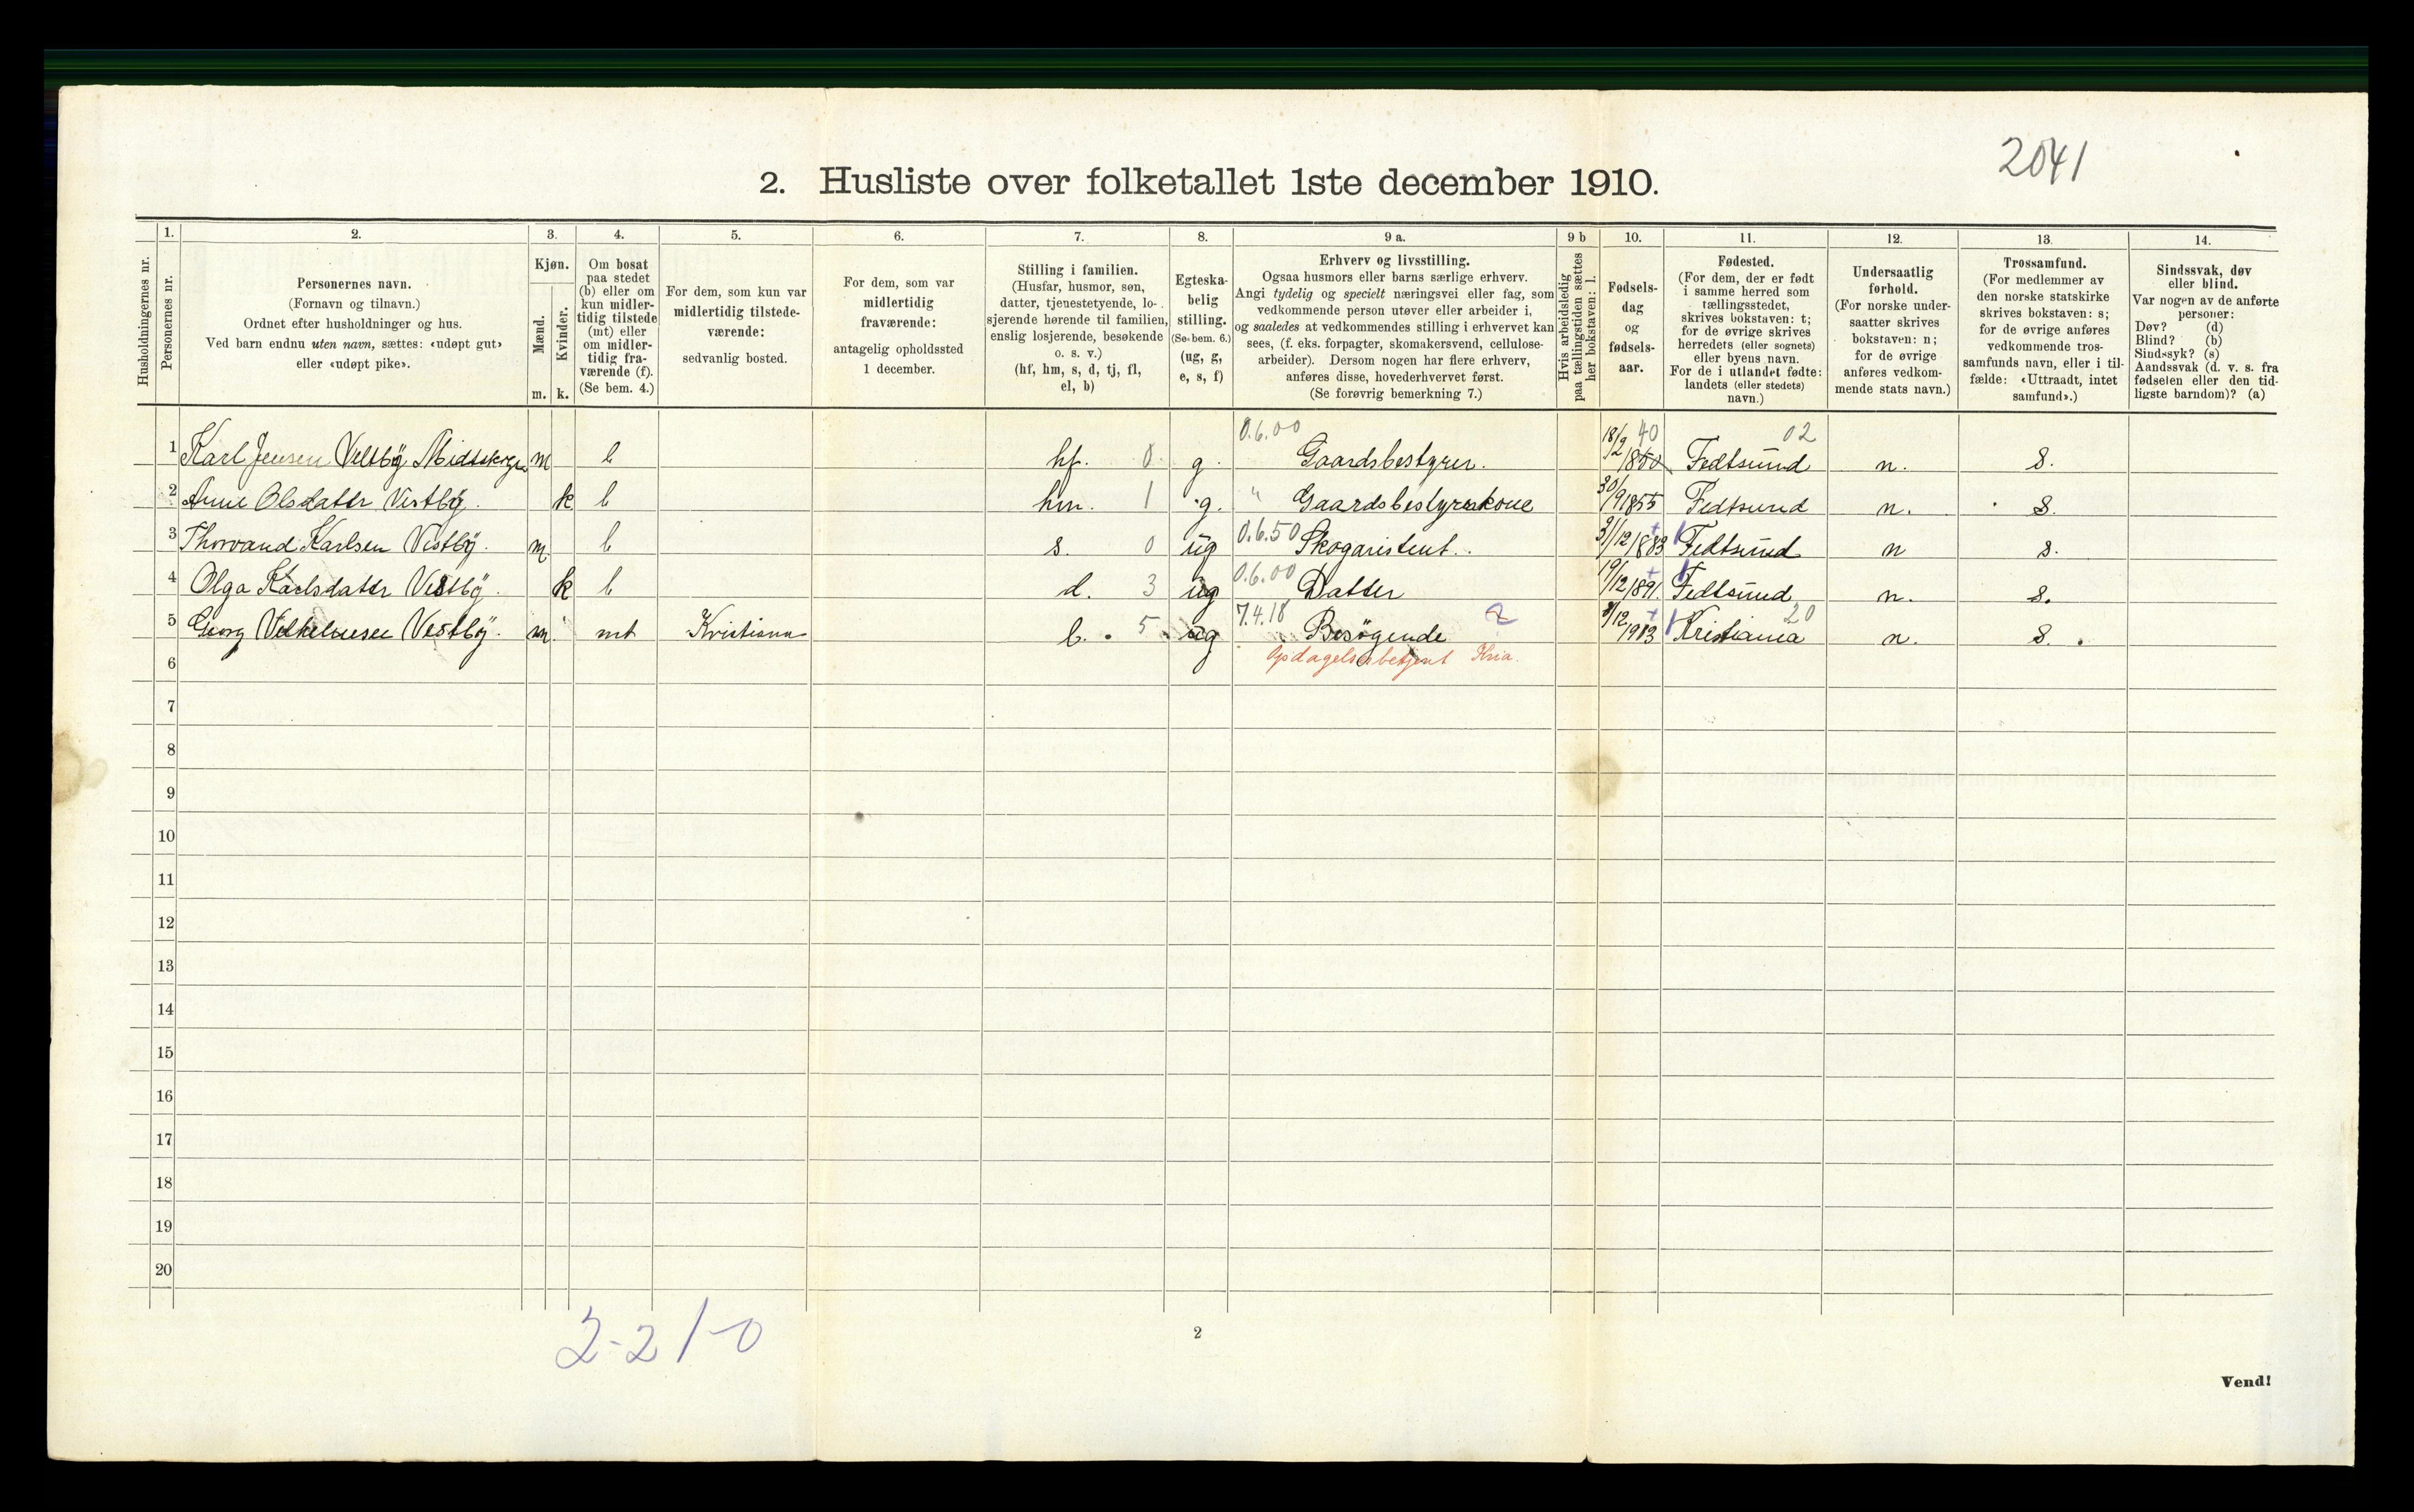 2041
2. Husliste over folketallet 1ste december 1910.
Husholdningernes nr.
1.
Personernes nr.
2.
Personernes navn.
(Fornavn og tilnavn.)
Ordnet efter husholdninger og hus.
Ved barn endnu uten navn, sættes: «udøpt gut»
eller «udøpt pike».
3.
Kjøn.
Mænd.
m.
Kvinder.
k.
4.
Om bosat
paa stedet
(b) eller om
kun midler-
tidig tilstede
(mt) eller
om midler-
tidig fra-
værende (f).
(Se bem. 4.)
5.
For dem, som kun var
midlertidig tilstede-
værende:
sedvanlig bosted.
6.
For dem, som var
midlertidig
fraværende:
antagelig opholdssted
1 december.
7.
Stilling i familien.
(Husfar, husmor, søn,
datter, tjenestetyende, lo-
sjerende hørende til familien,
enslig losjerende, besøkende
o. s. v.)
(hf, hm, s, d, tj, fl,
el, b)
8.
Egteska-
belig
stilling.
(Se bem. 6.)
(ug, g,
e, s, f)
9 a.
Erhverv og livsstilling.
Ogsaa husmors eller barns særlige erhverv.
Angi tydelig og specielt næringsvei eller fag, som
vedkommende person utøver eller arbeider i,
og saaledes at vedkommendes stilling i erhvervet kan
sees, (f. eks. forpagter, skomakersvend, cellulose-
arbeider). Dersom nogen har flere erhverv,
anføres disse, hovederhvervet først.
(Se forøvrig bemerkning 7.)
9 b
Hvis arbeidsledig
paa tællingstiden sættes
her bokstaven: l.
10.
Fødsels-
dag
og
fødsels-
aar.
11.
Fødested.
(For dem, der er født
i samme herred som
tællingsstedet,
skrives bokstaven: t;
for de øvrige skrives
herredets (eller sognets)
eller byens navn.
For de i utlandet fødte:
landets (eller stedets)
navn.)
12.
Undersaatlig
forhold.
(For norske under-
saatter skrives
bokstaven: n;
for de øvrige
anføres vedkom-
mende stats navn.)
13.
Trossamfund.
(For medlemmer av
den norske statskirke
skrives bokstaven: s;
for de øvrige anføres
vedkommende tros-
samfunds navn, eller i til-
fælde: «Uttraadt, intet
samfund».)
14.
Sindssvak, døv
eller blind.
Var nogen av de anførte
personer:
Døv? (d)
Blind? (b)
Sindssyk? (s)
Aandssvak (d. v. s. fra
fødselen eller den tid-
ligste barndom)? (a)
0.6.00 40 02
1 Karl Jensen Vestby m b hf. 0 g. Gaardsbestyrer. 18/2 1850 Fedtsund n. s.
2 Anne Olsdatter Vestby. k b hm. 1 g. " Gaardsbestyrerkone 30/9 1855 Fedtsund n. s.
3 Thorvand Karlsen Vestby. m b s. 0 ug 0.6.50 Skogasistent. 31/12 1883 Fedtsund n s.
4 Olga Karlsdatter Vestby. k b d. 3 ug 0.6.00 Datter 19/12 1891. Fedtsund n. s.
5 Georg Vilhelmsen Vestby. m mt Kristiana b. 5 ug 7.4.18 Besøgende 2 Kristiania 20 n. s.
6 Opdagelsesbetjent Kria.
7
8
9
10
11
12
13
14
15
16
17
18
19
20
2-2 1-0
2
Vend!